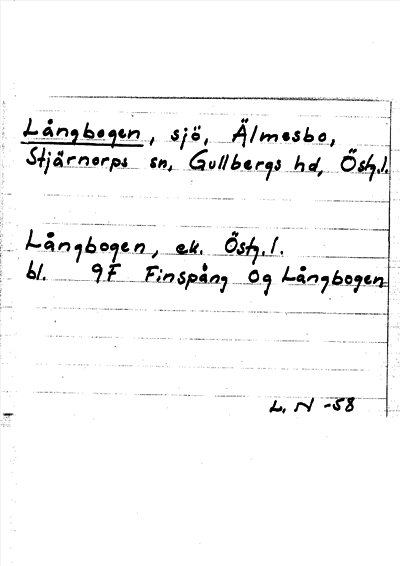 Långbogen, sjö, Älmesbo,
Stjärnorps sn, Gullbergs hd, Östg.l.
Långbogen, ek. Östg.l.
bl. 9F Finspång 0g Långbogen
L. N -58